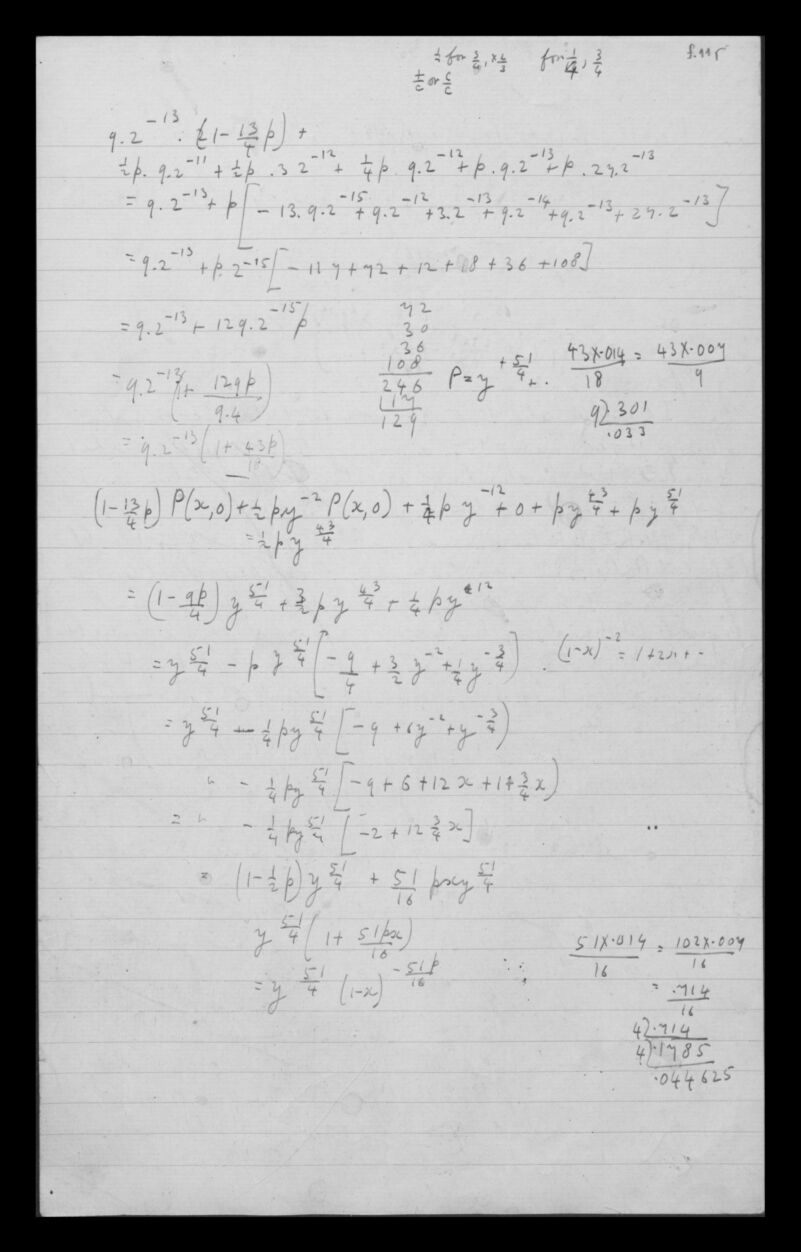 ½ for 3/4, × 2/3   for 1/4, 3/4   f.115
t/c or c/c
9.2^-13 . (1 - 13/4 p) +
½p. 9.2^-11 + ½p . 3 2^-12 + ¼p 9.2^-12 + p. 9.2^-13 + p . 27.2^-13
= 9.2^-13 + p [ - 13.9.2^-15 + 9.2^-12 + 3.2^-13 + 9.2^-14 + 9.2^-13 + 27.2^-13 ]
= 9.2^-13 + p. 2^-15 [ - 117 + 72 + 12 + 18 + 36 + 108 ]
= 9.2^-13 + 129.2^-15 p
72
30
36
108
246
117
129
= 9.2^-13 (1 + 129p/9.4)
P = y^+51/4 + .   43×.014/18 = 43×.007/9
9).301
.033
= 9.2^-13 (1 + 43p/12)
(1 - 13/4 p) P(x,0) + ½ p y^-2 P(x,0) + ¼ p y^-12 + 0 + p y^43/4 + p y^51/4
= ½ p y^43/4
= (1 - 9p/4) y^51/4 + 3/2 p y^43/4 + ¼ p y^12
= y^51/4 - p y^51/4 [ - 9/4 + 3/2 y^-2 + ¼ y^-3/4 ] . (1-x)^-2 = 1+2x+ -
= y^51/4 - ¼ p y^51/4 [ -9 + 6y^-2 + y^-3/4 )
" - ¼ p y^51/4 [ -9 + 6 + 12x + 1 + 3/4 x )
= " - ¼ p y^51/4 [ -2 + 12 3/4 x ]
= (1 - ½p) y^51/4 + 51/16 p x y^51/4
y^51/4 (1 + 51px/16)
= y^51/4 (1-x)^-51p/16
51×.014/16 = 102×.007/16
= .714/16
4).714
4).1785
.044625